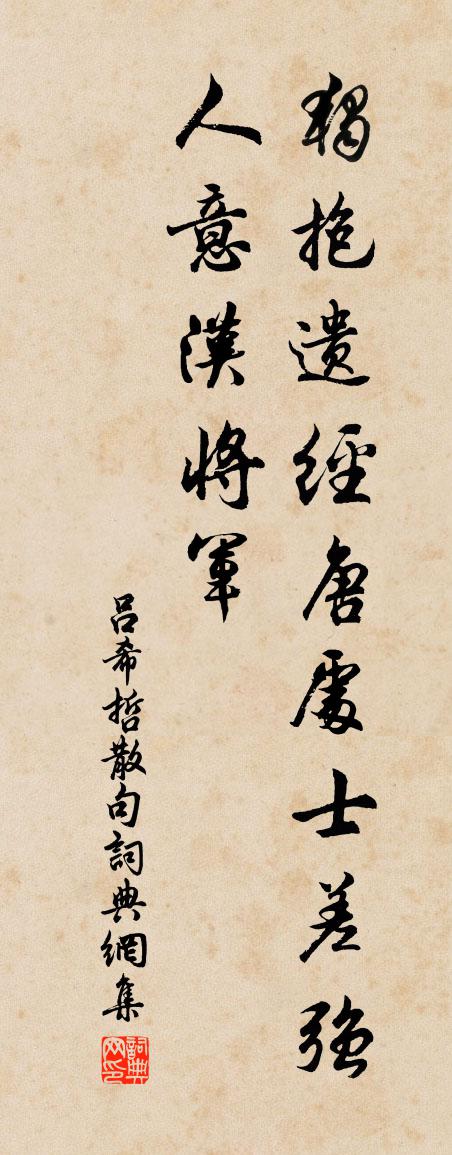 獨抱遺經唐處士差強
人意漢將軍
吕希哲散句詞典網集
詞典网印